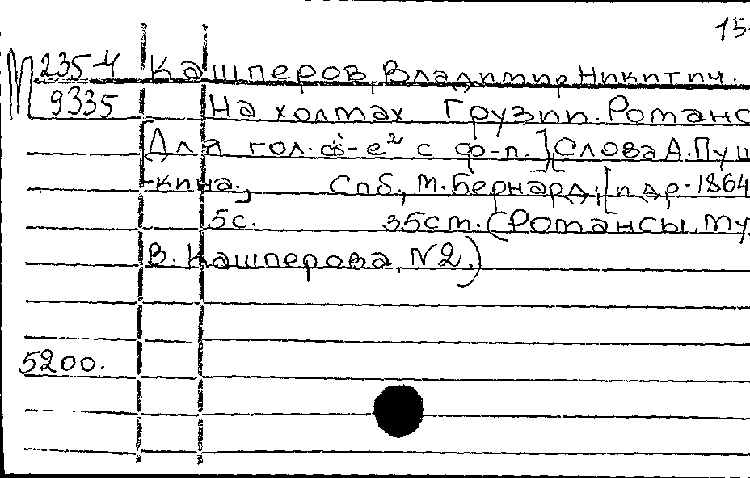 15
М 235-4 Кашперов, Владимир Никитич.
9335 На холмах Грузии. Романс
[Для гол. ф-е² с ф-п.] Слова А. Пуш
-кина. Спб., М. Бернард, [ц.др. 1864
5с. 35см. (Романсы. Му
В. Кашперова. №2.)
5200.